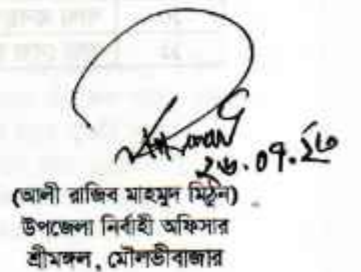 ২৬.০৭.২৩
(আলী রাজিব মাহমুদ মিঠুন)
উপজেলা নির্বাহী অফিসার
শ্রীমঙ্গল, মৌলভীবাজার